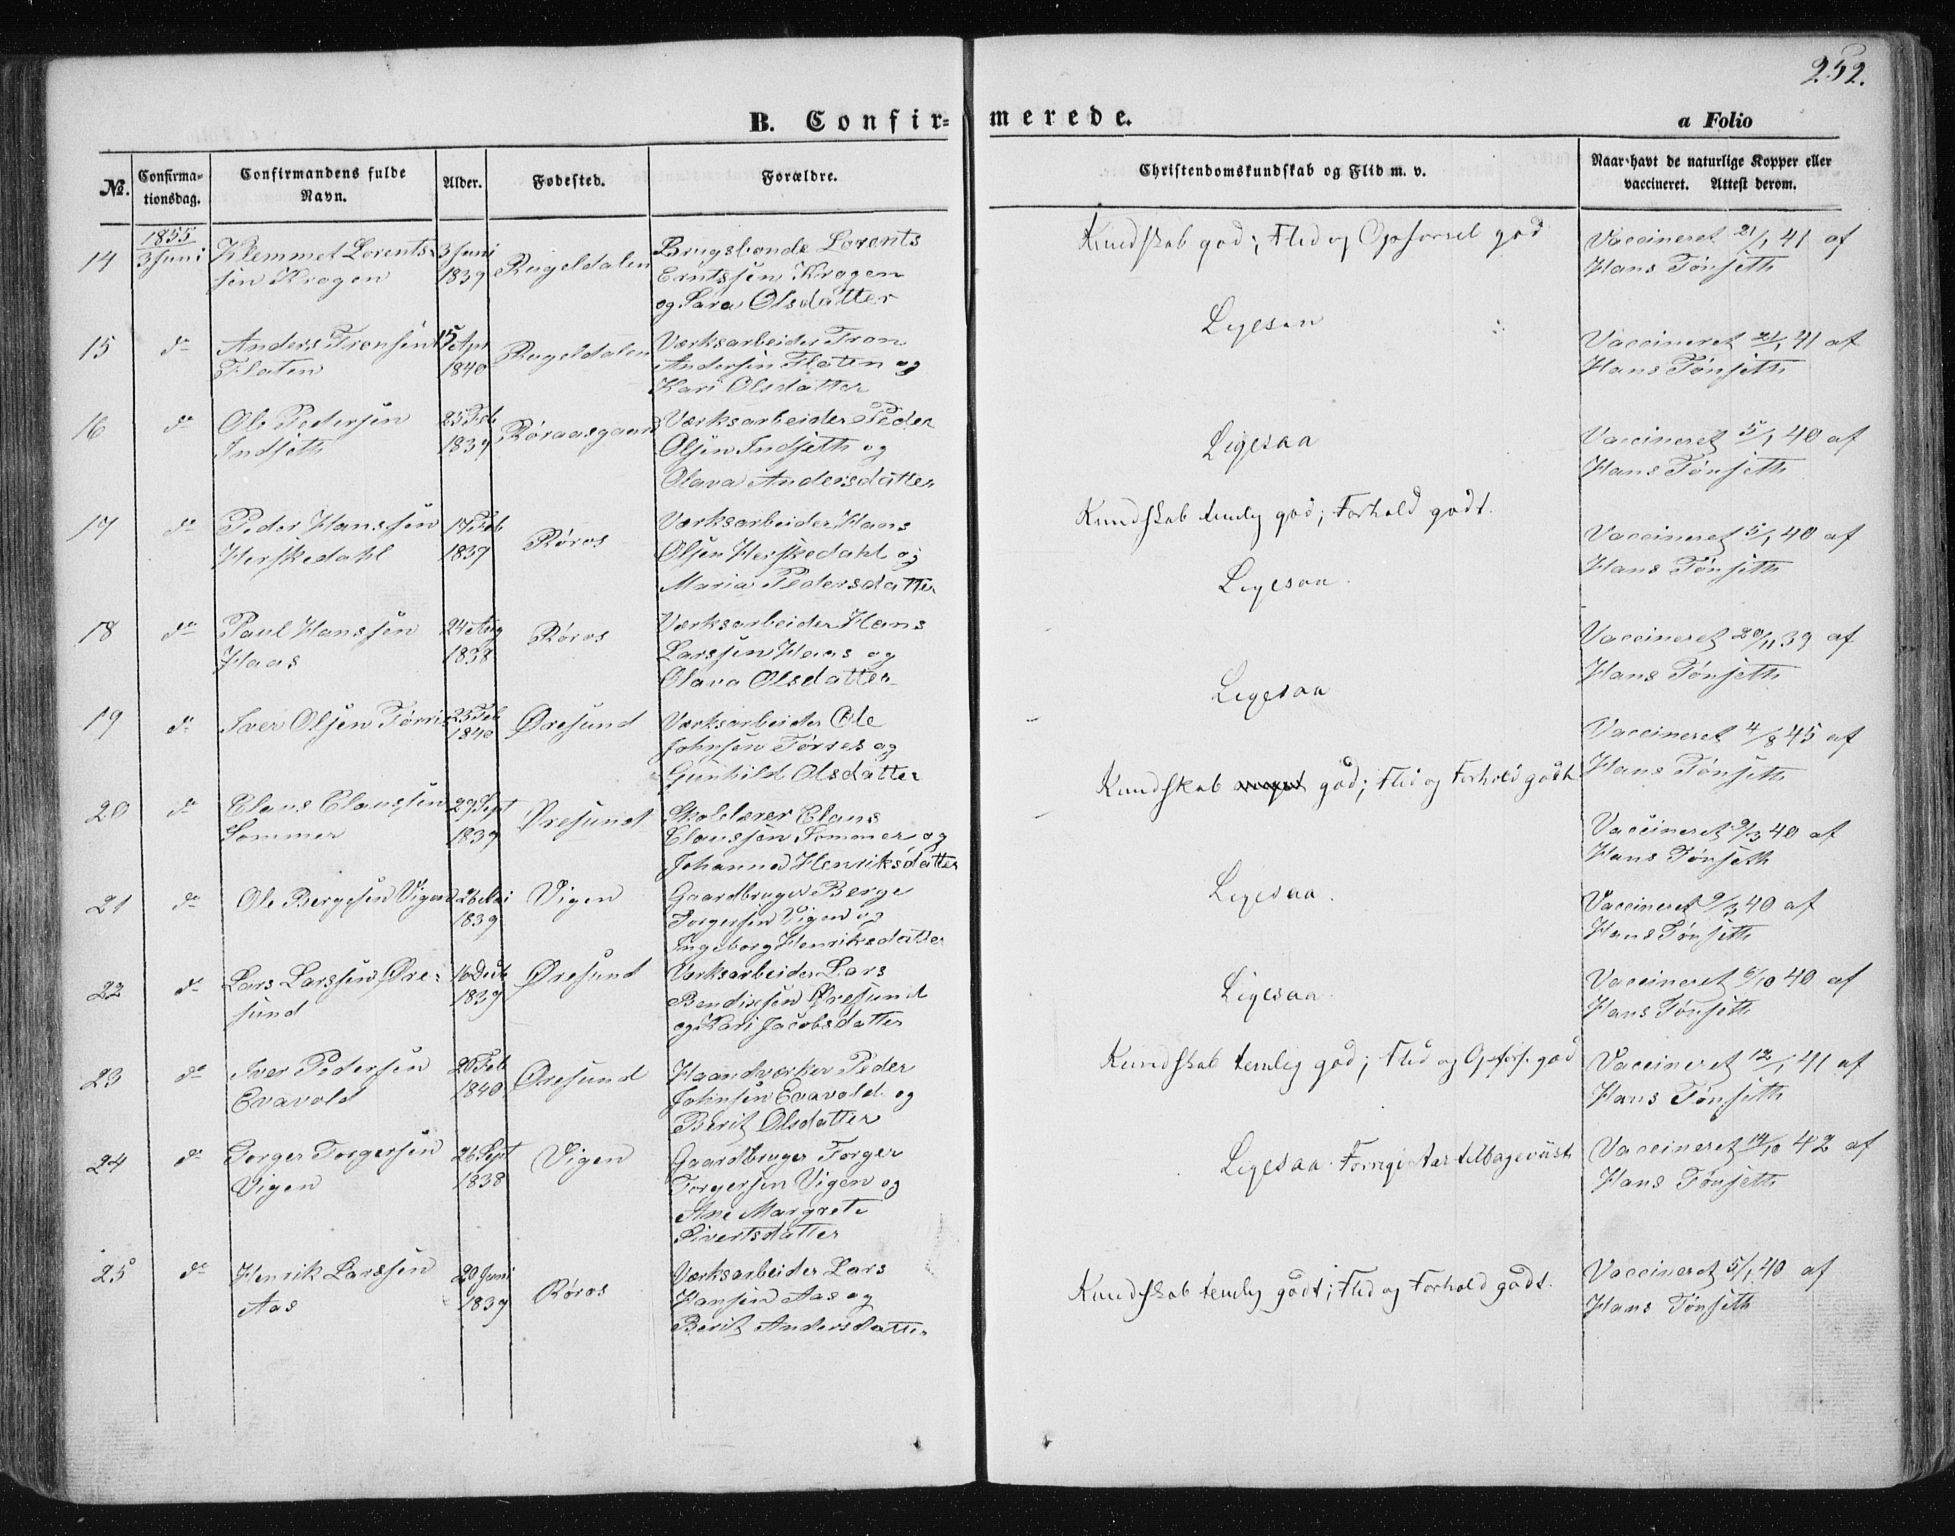 252.
B. Confir- merede.
a Folio
No.
Confirma-
tionsdag.
Confirmandens fulde
Navn.
Alder.
Fødested.
Forældre.
Christendomskundskab og Flid m. v.
Naar havt de naturlige Kopper eller
vaccineret. Attest derom.
14 1855 3 Juni Klemmet Lorents- 3 Juni Rugeldalen Brugsbonde Lorents Kundskab god; Flid og Opførsel god Vaccineret 21/1 41 af
sen Krogen 1839 Erntssen Krogen Hans Tønseth
og Sara Olsdatter
15 do Anders Tronsen 15 Apr Rugeldalen Værksarbeider Tron Ligesaa Vaccineret 21/1 41 af
Flaten 1840 Andersen Flaten og Hans Tønseth
Kari Olsdatter
16 do Ole Pedersen 25 Feb Røraasgaard Værksarbeider Peder Ligesaa Vaccineret 5/1 40 af
Indseth 1839 Olsen Indseth og Hans Tønseth
Olava Andersdatter
17 do Peder Hanssen 17 Feb Røros Værksarbeider Hans Kundskab temlig god; Forhold godt. Vaccineret 5/1 40 af
Herskedahl 1837 Olsen Herskedahl og Hans Tønseth
Maria Pedersdatter
18 do Paul Hanssen 24 Aug Røros Værksarbeider Hans Ligesaa. Vaccineret 20/11 39 af
Haas 1838 Larssen Haas og Hans Tønseth
Olava Olsdatter
19 do Iver Olsen Tørres 23 Feb Øresund Værksarbeider Ole Ligesaa Vaccineret 4/8 45 af
1840 Johnsen Tørres og Hans Tønseth
Gunhild Olsdatter
20 do Claus Claussen 29 Sept Øresund Skolelærer Claus Kundskab meget god; Flid og Forhold godt Vaccineret 9/3 40 af
Sommer 1839 Claussen Sommer og Hans Tønseth
Johanna Henriksdatter
21 do Ole Bergesen Vigen 26 Mai Vigen Gaardbruger Berge Ligesaa. Vaccineret 9/3 40 af
1839 Torgersen Vigen og Hans Tønseth
Ingeborg Henriksdatter
22 do Lars Larssen Øre- 16 Øresund Værksarbeider Lars Ligesaa. Vaccineret 6/10 40 af
sund 1839 Bendixsen Øresund Hans Tønseth
og Kari Jacobsdatter
23 do Iver Pedersen 20 Feb Øresund Haandværker Peder Kundskab temlig god; Flid og Opførs. god Vaccineret 12/1 41 af
Evavold 1840 Johnsen Evavold og Hans Tønseth
Berit Olsdatter
24 do Torger Torgersen 26 Sept Vigen Gaardbruger Torger Ligesaa. Forrige Aar tilbageviist Vaccineret 14/10 42 af
Vigen 1838 Torgersen Vigen og Hans Tønseth
Ane Margrete
Sivertsdatter
25 do Henrik Larssen 20 Juni Røros Værksarbeider Lars Kundskab temlig godt; Flid og Forhold godt. Vaccineret 5/1 40 af
Aas 1839 Hansen Aas og Hans Tønseth
Berit Andersdatter